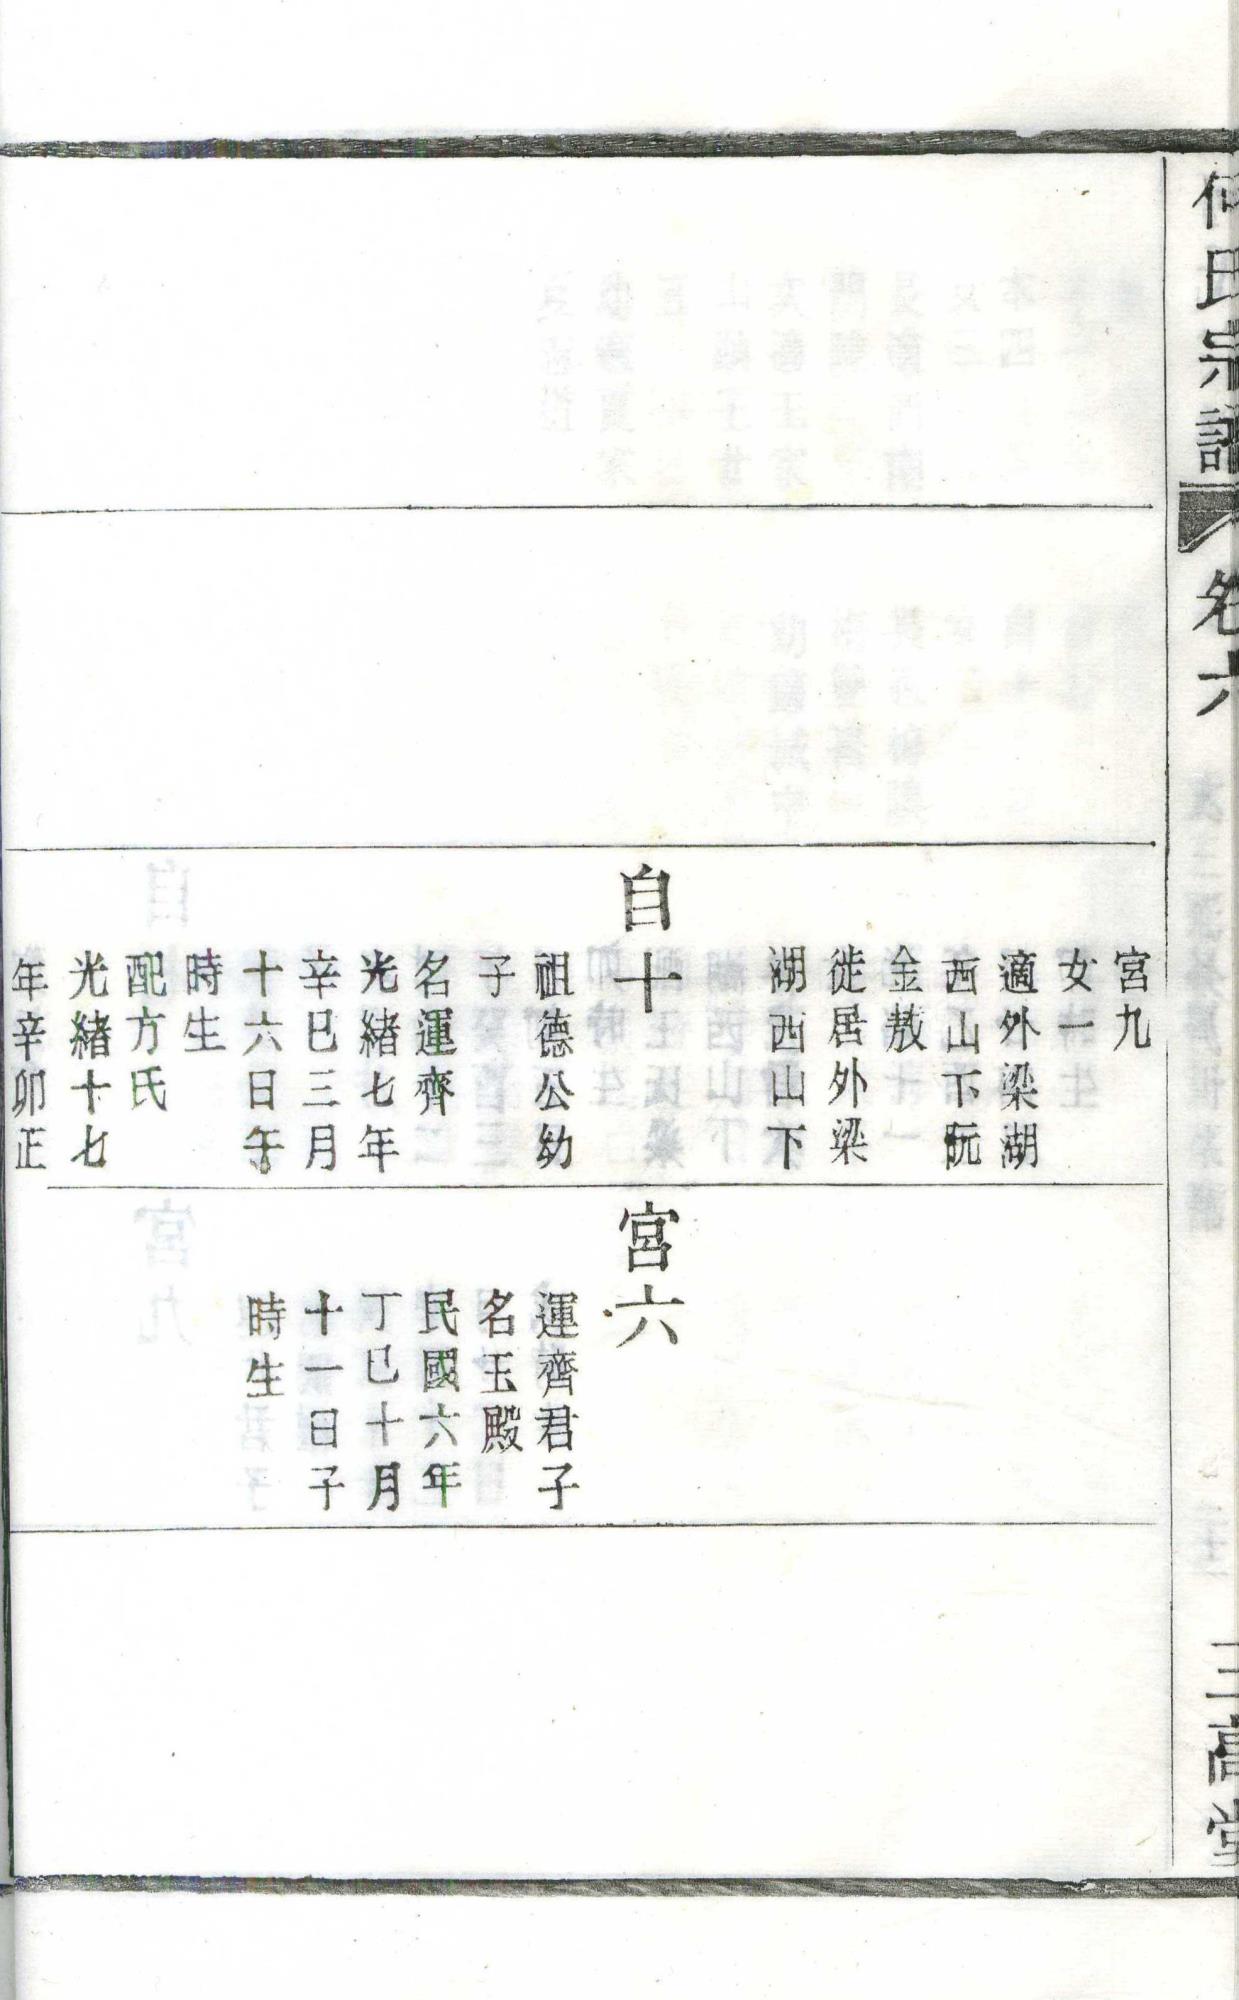 何氏宗譜
卷六
三高堂
宮九
女一
適外梁湖
西山下阮
金敖
徙居外梁
湖西山下
自十
祖德公幼
子
名運齊
光緒七年
辛巳三月
十六日午
時生
配方氏
光緒十七
年辛卯正
宮六
運齊君子
名玉殿
民國六年
丁巳十月
十一日子
時生